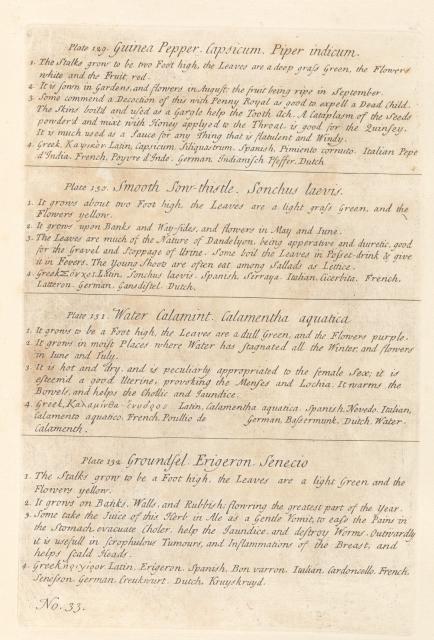 Plate 129. Guinea Pepper. Capsicum. Piper indicum.
1. The Stalks grow to be two Foot high, the Leaves are a deep grass Green, the Flowers
white and the Fruit, red.
2. It is sown in Gardens, and flowers in August, the fruit being ripe in September.
3. Some commend a Decoction of this with Penny Royal as good to expell a Dead Child.
The Skins boil'd and us'ed as a Gargle help the Tooth Ach. A Cataplasm of the Seeds
powder'd and mixt with Honey applyed to the Throat, is good for the Quinsey.
It is much used as a Sauce for any Thing that is flatulent and Windy.
4. Greek, Latin, Capsicum, Siliquastrum. Spanish, Pimiento cornuto. Italian Pepe
d'India. French, Poyvre d'Inde. German, Indianisch Pfeffer. Dutch.
Plate 130. Smooth Sow-thistle. Sonchus laevis.
1. It grows about two Foot high, the Leaves are a light grass Green, and the
Flowers yellow.
2. It grows upon Banks and Way-sides, and flowers in May and Iune.
3. The Leaves are much of the Nature of Dandelyon, being apperative and diuretic, good
for the Gravel and Stoppage of Urine. Some boil the Leaves in Posset-drink & give
it in Fevers. The Young Shoots are often eat among Sallads as Lettice.
4. Greek Σόγχος. Latin, Sonchus laevis. Spanish, Serraya. Italian, Cicerbita. French,
Latteron. German, Gansdistel. Dutch.
Plate 131. Water Calamint. Calamentha aquatica.
1. It grows to be a Foot high, the Leaves are a dull Green, and the Flowers purple.
2. It grows in moist Places where Water has stagnated all the Winter, and flowers
in Iune and Iuly.
3. It is hot and dry, and is peculiarly appropriated to the female Sex; it is
esteem'd a good Uterine, provoking the Menses and Lochia. It warms the
Bowels, and helps the Chollic and Iaundice.
4. Greek, Καλαμίνθα Latin, Calamentha aquatica. Spanish, Nevedo. Italian,
Calamento aquatico. French, Poullio de German, Dutch, Water
Calamenth.
Plate 132. Groundsel. Erigeron. Senecio
1. The Stalks grow to be a Foot high, the Leaves are a light Green, and the
Flowers yellow.
2. It grows on Banks, Walls, and Rubbish; flowring the greatest part of the Year.
3. Some take the Iuice of this Herb in Ale as a Gentle Vomit, to ease the Pains in
the Stomach, evacuate Choler, help the Iaundice, and destroy Worms. Outwardly
it is usefull in scrophulous Tumours, and Inflammations of the Breast, and
helps scald Heads.
4. Greek Latin, Erigeron. Spanish, Bon varron. Italian, Cardoncello. French,
Senesson. German, Creutzwurt. Dutch, Kruyskruyd.
No. 33.